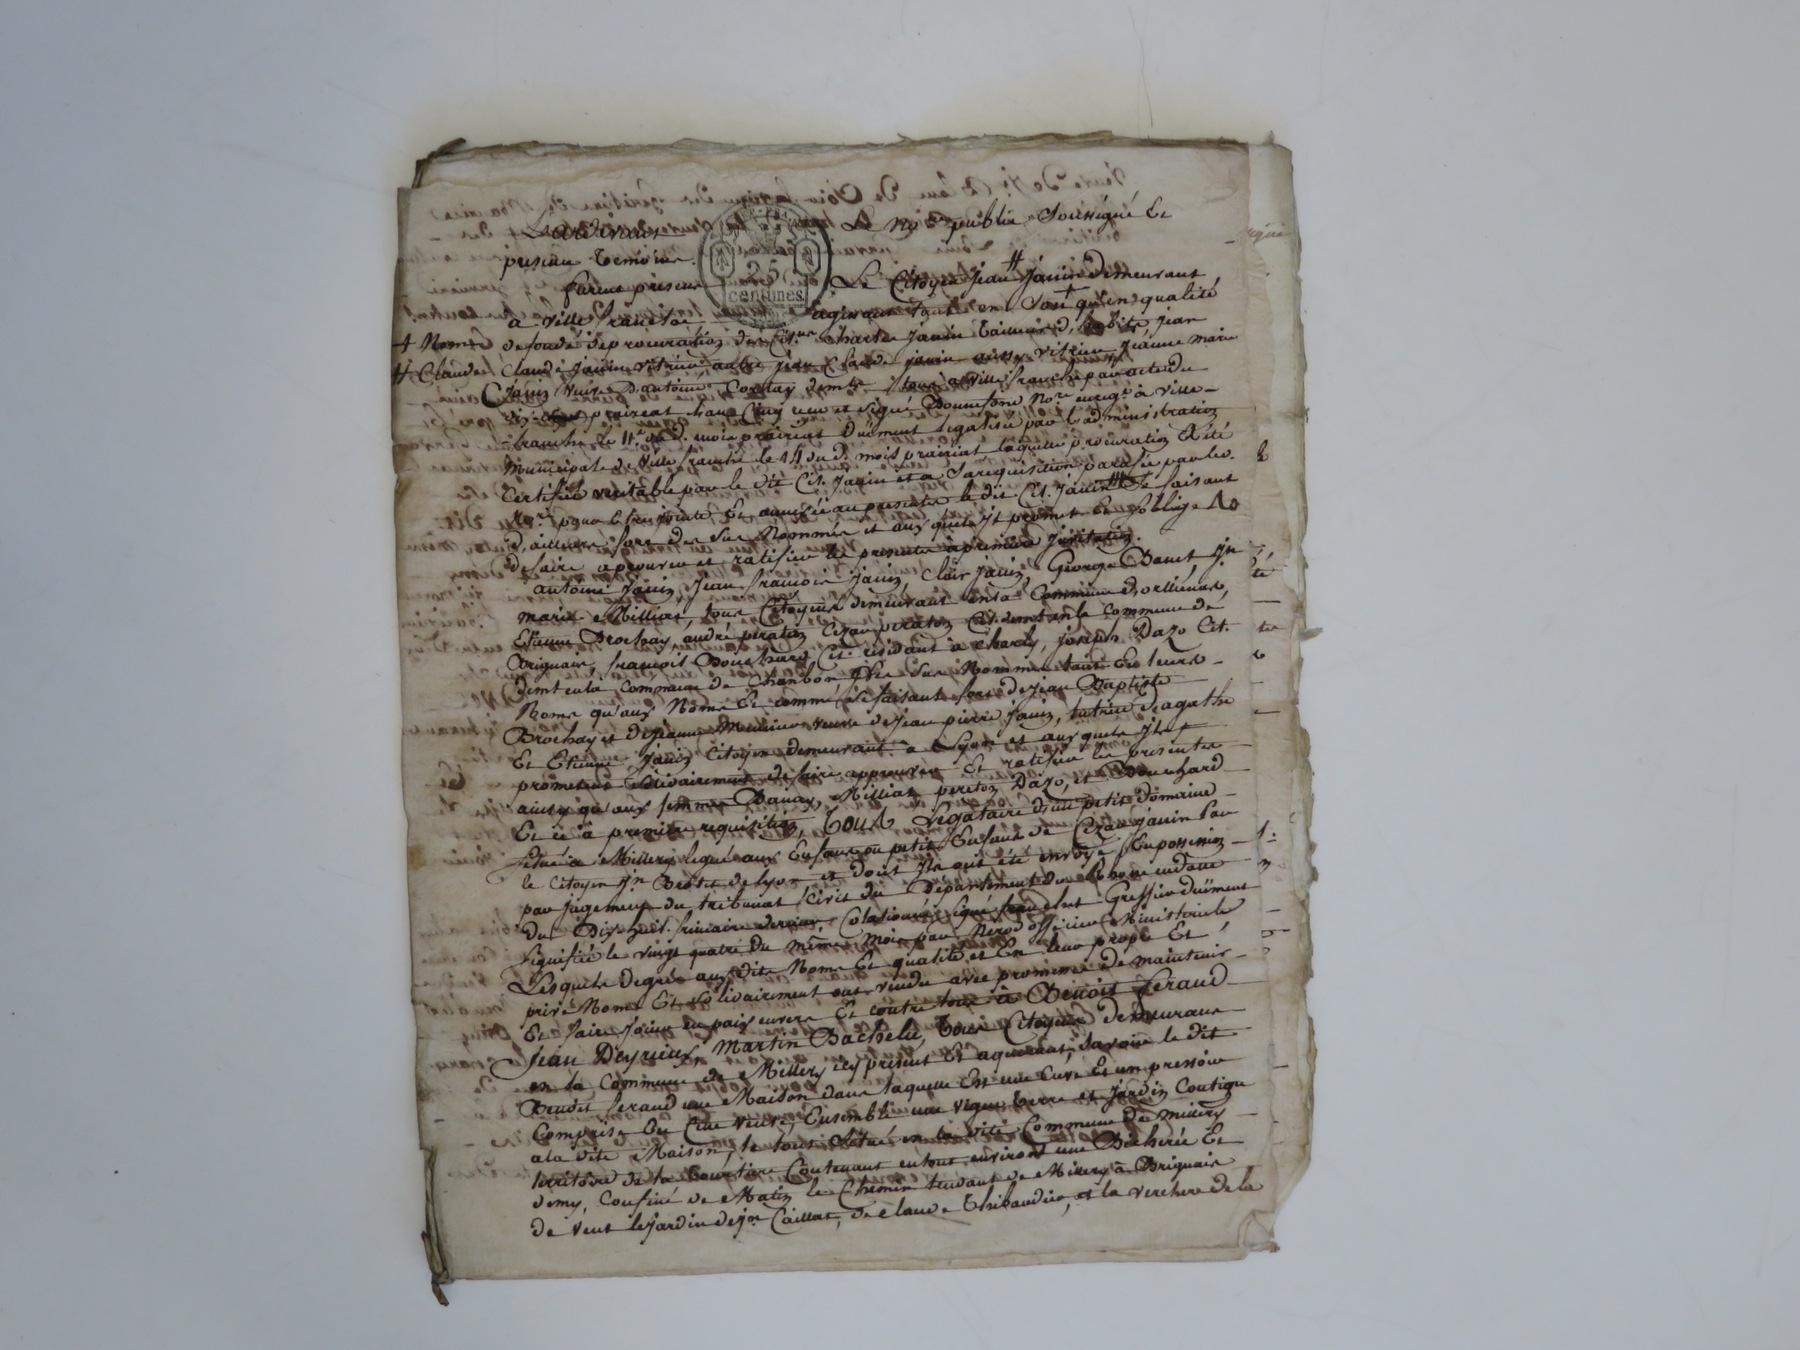 Le no.re publie Soussigné Et
presens temoins.
furent présens Le Citoyen Jean # Janin demeurant
25
centimes
à Villefranche agissant tant en Son + qu'en qualité
+ Nom de fondé de procuration des Cit.ens Charles Janin Jean
# Claude Claude Janin vitrier autre Jean Claude Janin aussy vitrier Jeanne marie
Janin veuve D'antoine tous à villefranche par acte du
prairial an Cinq reçu et signé Bonnefond No.re enregé à ville-
franche le 11.e du d. mois prairial Duëment legalisée par l'administration
Municipale de Villefranche le 14 du d. mois prairial laquelle procuration a été
Certifiée veritable par le dit Cit. Janin et a Sa requisition parafée par les
N.res pour être jointe Et annexée au presentes le dit Cit. Janin # Se faisant
d'ailleurs fort des Sus Nommés et aux quels Jl promet Et S'obblige
de faire aprouver et ratifier les presentes à premiere
antoine Janin, Jean francois Janin, Clair Janin, George Danet, Jn
marie Milliat, tous Citoyens demeurant en la Commune d'orlienas,
Etienne Brochay, andré peraton Cezar peraton Cit. demt en la Commune de
Brignais, francois Bouchard Cit. residant à Charly, joseph Dazo Cit.
demt en la Commune de Chanbon les Sus Nommés tant En leurs
Noms qu'aux Noms Et comme Se faisant fort de Jean Baptiste
Brochay et de Jeanne veuve de Jean pierre Janin, tutrice d'agathe
Et Etienne Janin Citoyens demeurant à Lyon et aux quels Jls
promettent Solidairement de faire approuver Et ratifier les presentes
ainsy qu'aux femmes Milliat, peraton Dazo, et Bouchard
Et ce à premiere requisition, tous Legataires d'un petit domaine
Situé à Millery legué aux Enfans ou petits Enfans de Cezar Janin Par
le Citoyen Jn de Lyon et dont Jls ont été envoyés En possession
par Jugement du tribunal Civil du Département du Rhone en datte
du Dix huit frimaire dernier, Colationné Signé Greffier duëment
Signiffié le vingt quatre du même mois par officier Ministeriele
Lesquels de gré aux dits Noms Et qualités et En leur propre Et
privé Noms Et Solidairement ont vendu avec promesse de maintenir
Et faire Jouir en paix envers Et contre tous à Benoit Feraud
Jean Deyrieux, Martin Bachelu, tous Citoyens demeurans
en la Commune de Millery icy présent Et aquerant, Savoir le dit
Benoit Feraud une Maison dans laquelle Est une Cuve Et un pressoir
Comprise En Cette vente, Ensemble une vigne terre et Jardin Contigu
à la dite Maison, le tout Situé en la dite Commune de millery
territoire de la Contenant en tout environt une Bicherée Et
demy, Confiné de Matin le Chemin tendant de Millery à Brignais
de vent le jardin de jn Caillat, de Claude Thibaudier, et la verchere de la